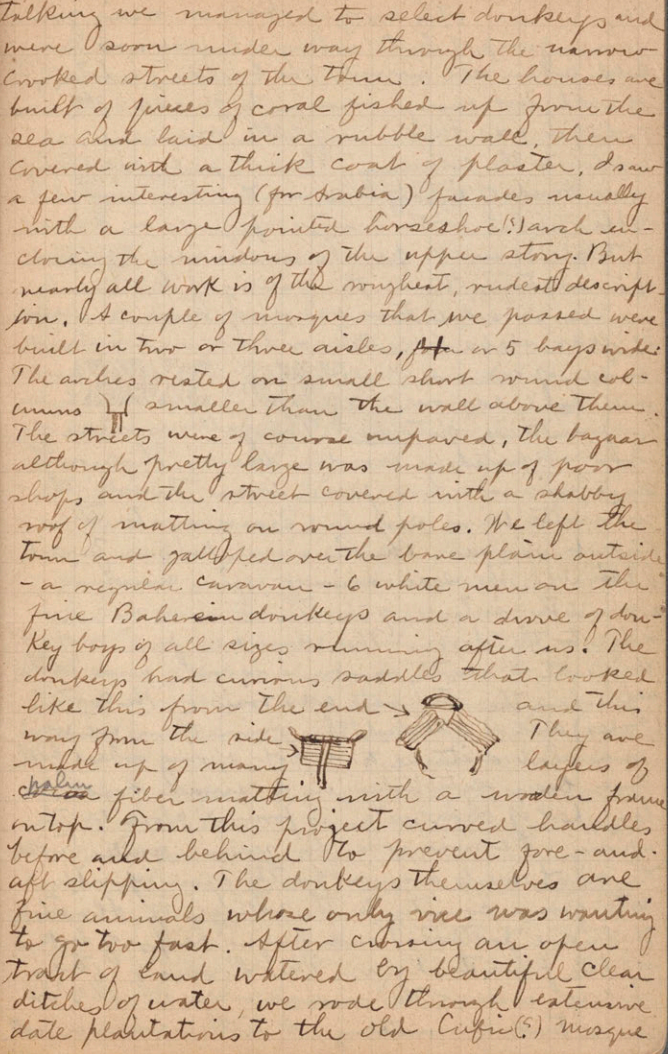 talking we managed to select donkeys and
were soon under way through the narrow
crooked streets of the town. The houses are
built of pieces of coral fished up from the
sea and laid in a rubble wall, then
covered with a thick coat of plaster, I saw
a few interesting (for Arabia) facades usually
with a large pointed horseshoe(?) arch en-
closing the windows of the upper story. But
nearly all work is of the roughest, rudest descript-
ion. A couple of mosques that we passed were
built in two or three aisles, or 5 bays wide:
The arches rested on small short round col-
umns smaller than the wall above them.
The streets were of course unpaved, the bazaar
although pretty large was made up of poor
shops and the street covered with a shabby
roof of matting on round poles. We left the
town and galloped over the bare plain outside
- a regular caravan - 6 white men on the
fine Baherein donkeys and a drove of don-
key boys of all sizes running after us. The
donkeys had curious saddles that looked
like this from the end and this
way from the side They are
made up of many layers of
palm fiber matting with a wooden frame
on top. From this project curved handles
before and behind to prevent fore-and-
aft slipping. The donkeys themselves are
fine animals whose only vice was wanting
to go too fast. After crossing an open
tract of land watered by beautiful clear
ditches of water, we rode through extensive
date plantations to the old Cufic(?) mosque